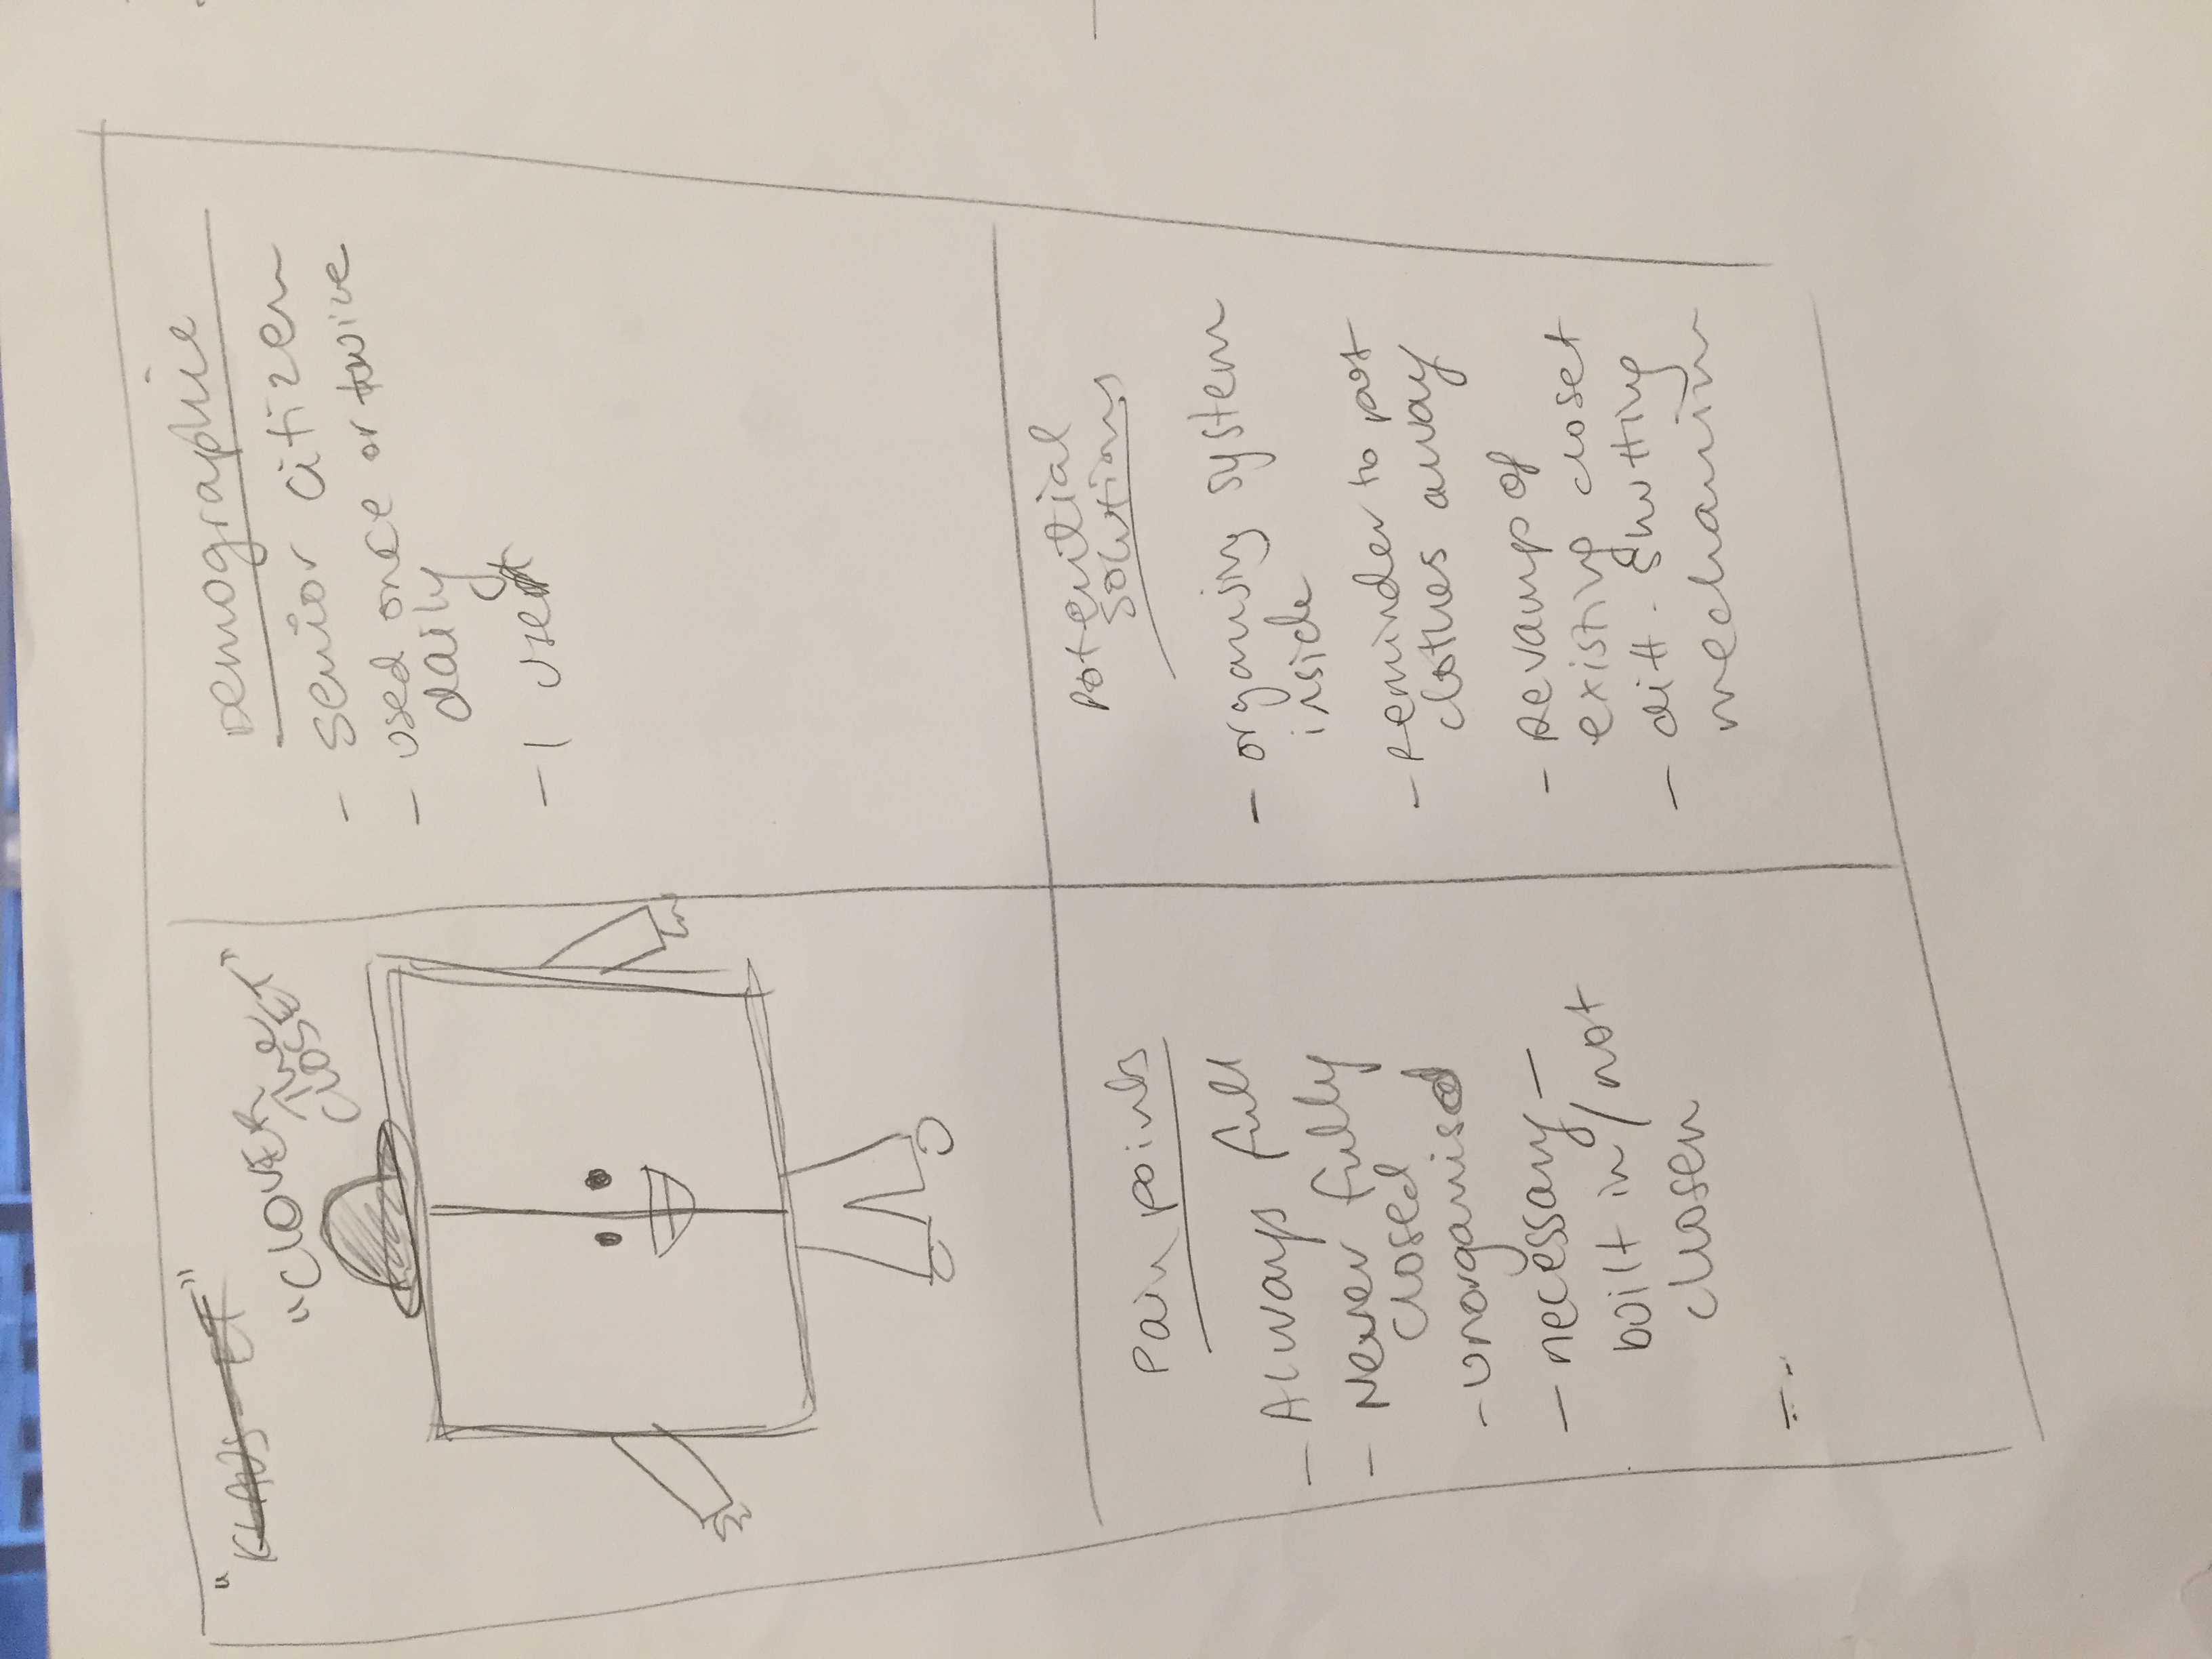 "KLAUS-ET"
"CLOVER
The
CLOSET"
Demographic
- senior citizen
- used once or twice
daily
- 1 user
Pain points
- Always full
- Never fully
closed
- unorganised
- necessary -
built in / not
chosen
Potential
solutions
- organising system
inside
- Reminder to put
clothes away
- Revamp of
existing closet
- diff. shutting
mechanism